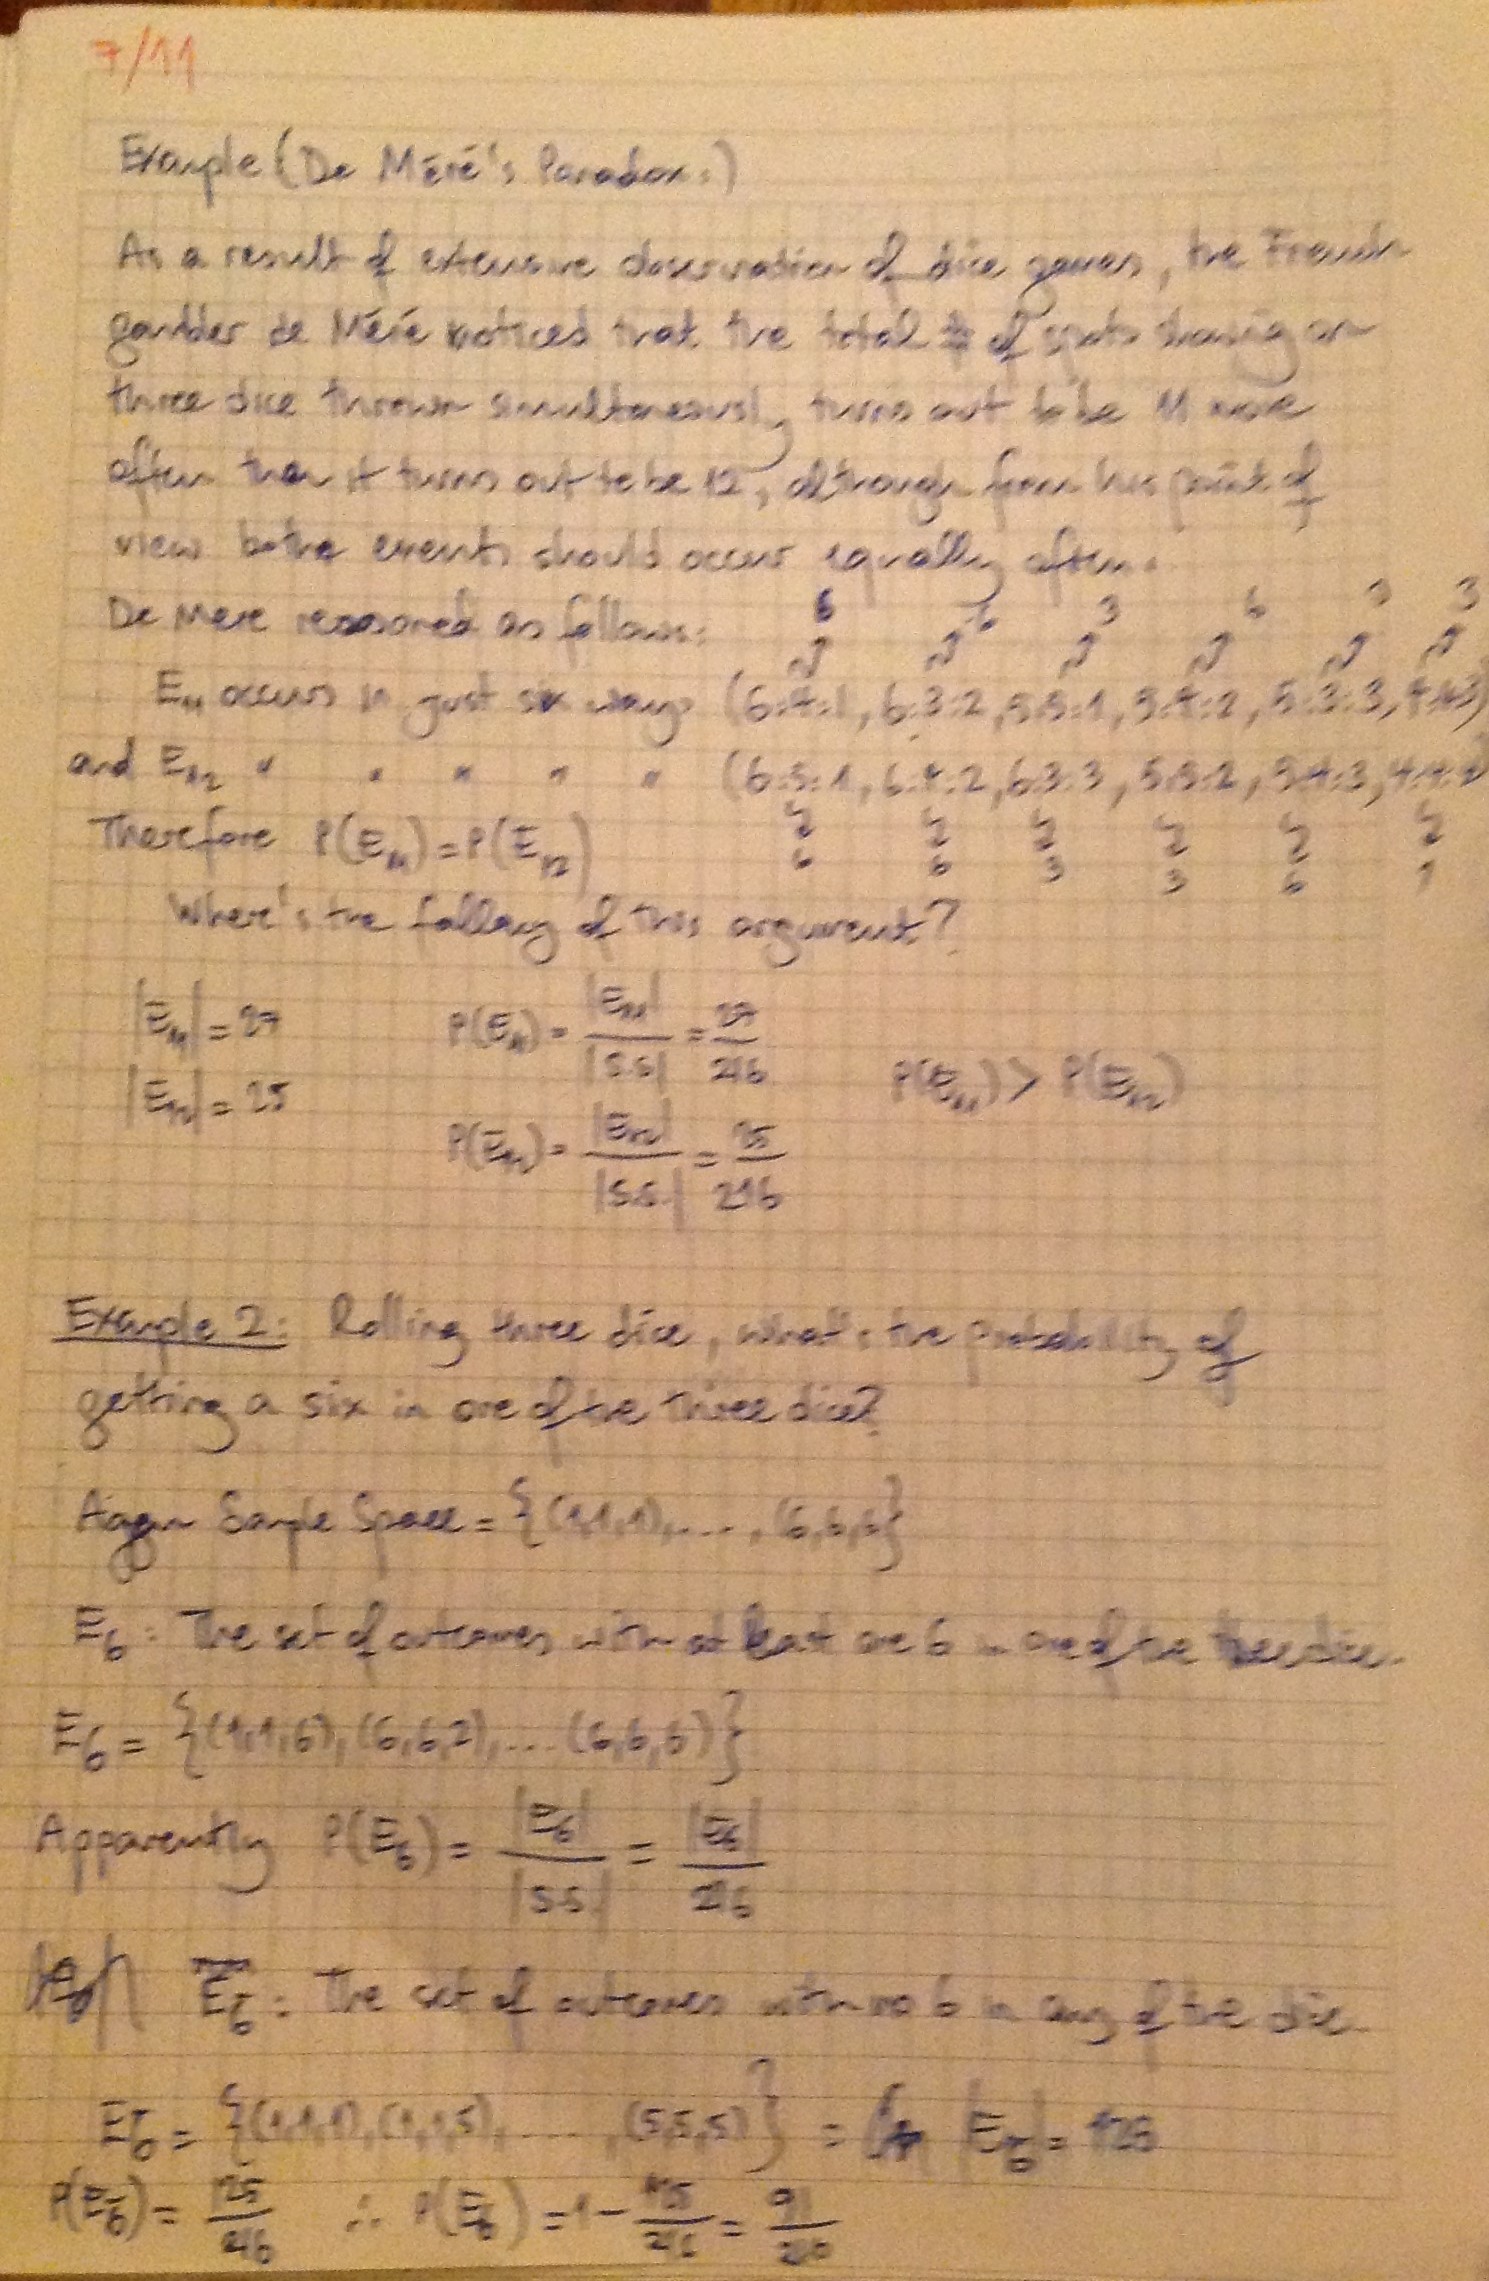 7/11
Example (De Méré's Paradox:)
As a result of extensive observation of dice games, the French
gambler de Méré noticed that the total # of spots showing on
three dice thrown simultaneously turns out to be 11 more
often than it turns out to be 12, although from his point of
view bothe events should occur equally often.
De Mere reasoned as follows:
6 6 3 6 3 3
E11 occurs in just six ways (6:4:1, 6:3:2, 5:5:1, 5:4:2, 5:3:3, 4:4:3)
and E12 " " " " " (6:5:1, 6:4:2, 6:3:3, 5:5:2, 5:4:3, 4:4:4)
6 6 3 3 6 1
Therefore P(E11) = P(E12)
Where's the fallacy of this argument?
|E11| = 27 P(E11) = |E11| / |S.S| = 27/216
|E12| = 25 P(E11) > P(E12)
P(E12) = |E12| / |S.S.| = 25/216
Example 2: Rolling three dice, what's the probability of
getting a six in one of the three dice?
Again Sample Space = {(1,1,1), ...., (6,6,6)}
E6: The set of outcomes with at least one 6 in one of the three dice.
E6 = {(1,1,6), (6,6,2), ... (6,6,6)}
Apparently P(E6) = |E6| / |S.S.| = |E6| / 216
E6̄: The set of outcomes with no 6 in any of the dice.
E6̄ = {(1,1,1), (1,1,5), ...., (5,5,5)} = |E6̄| = 125
P(E6̄) = 125/216 ∴ P(E6) = 1 - 125/216 = 91/216